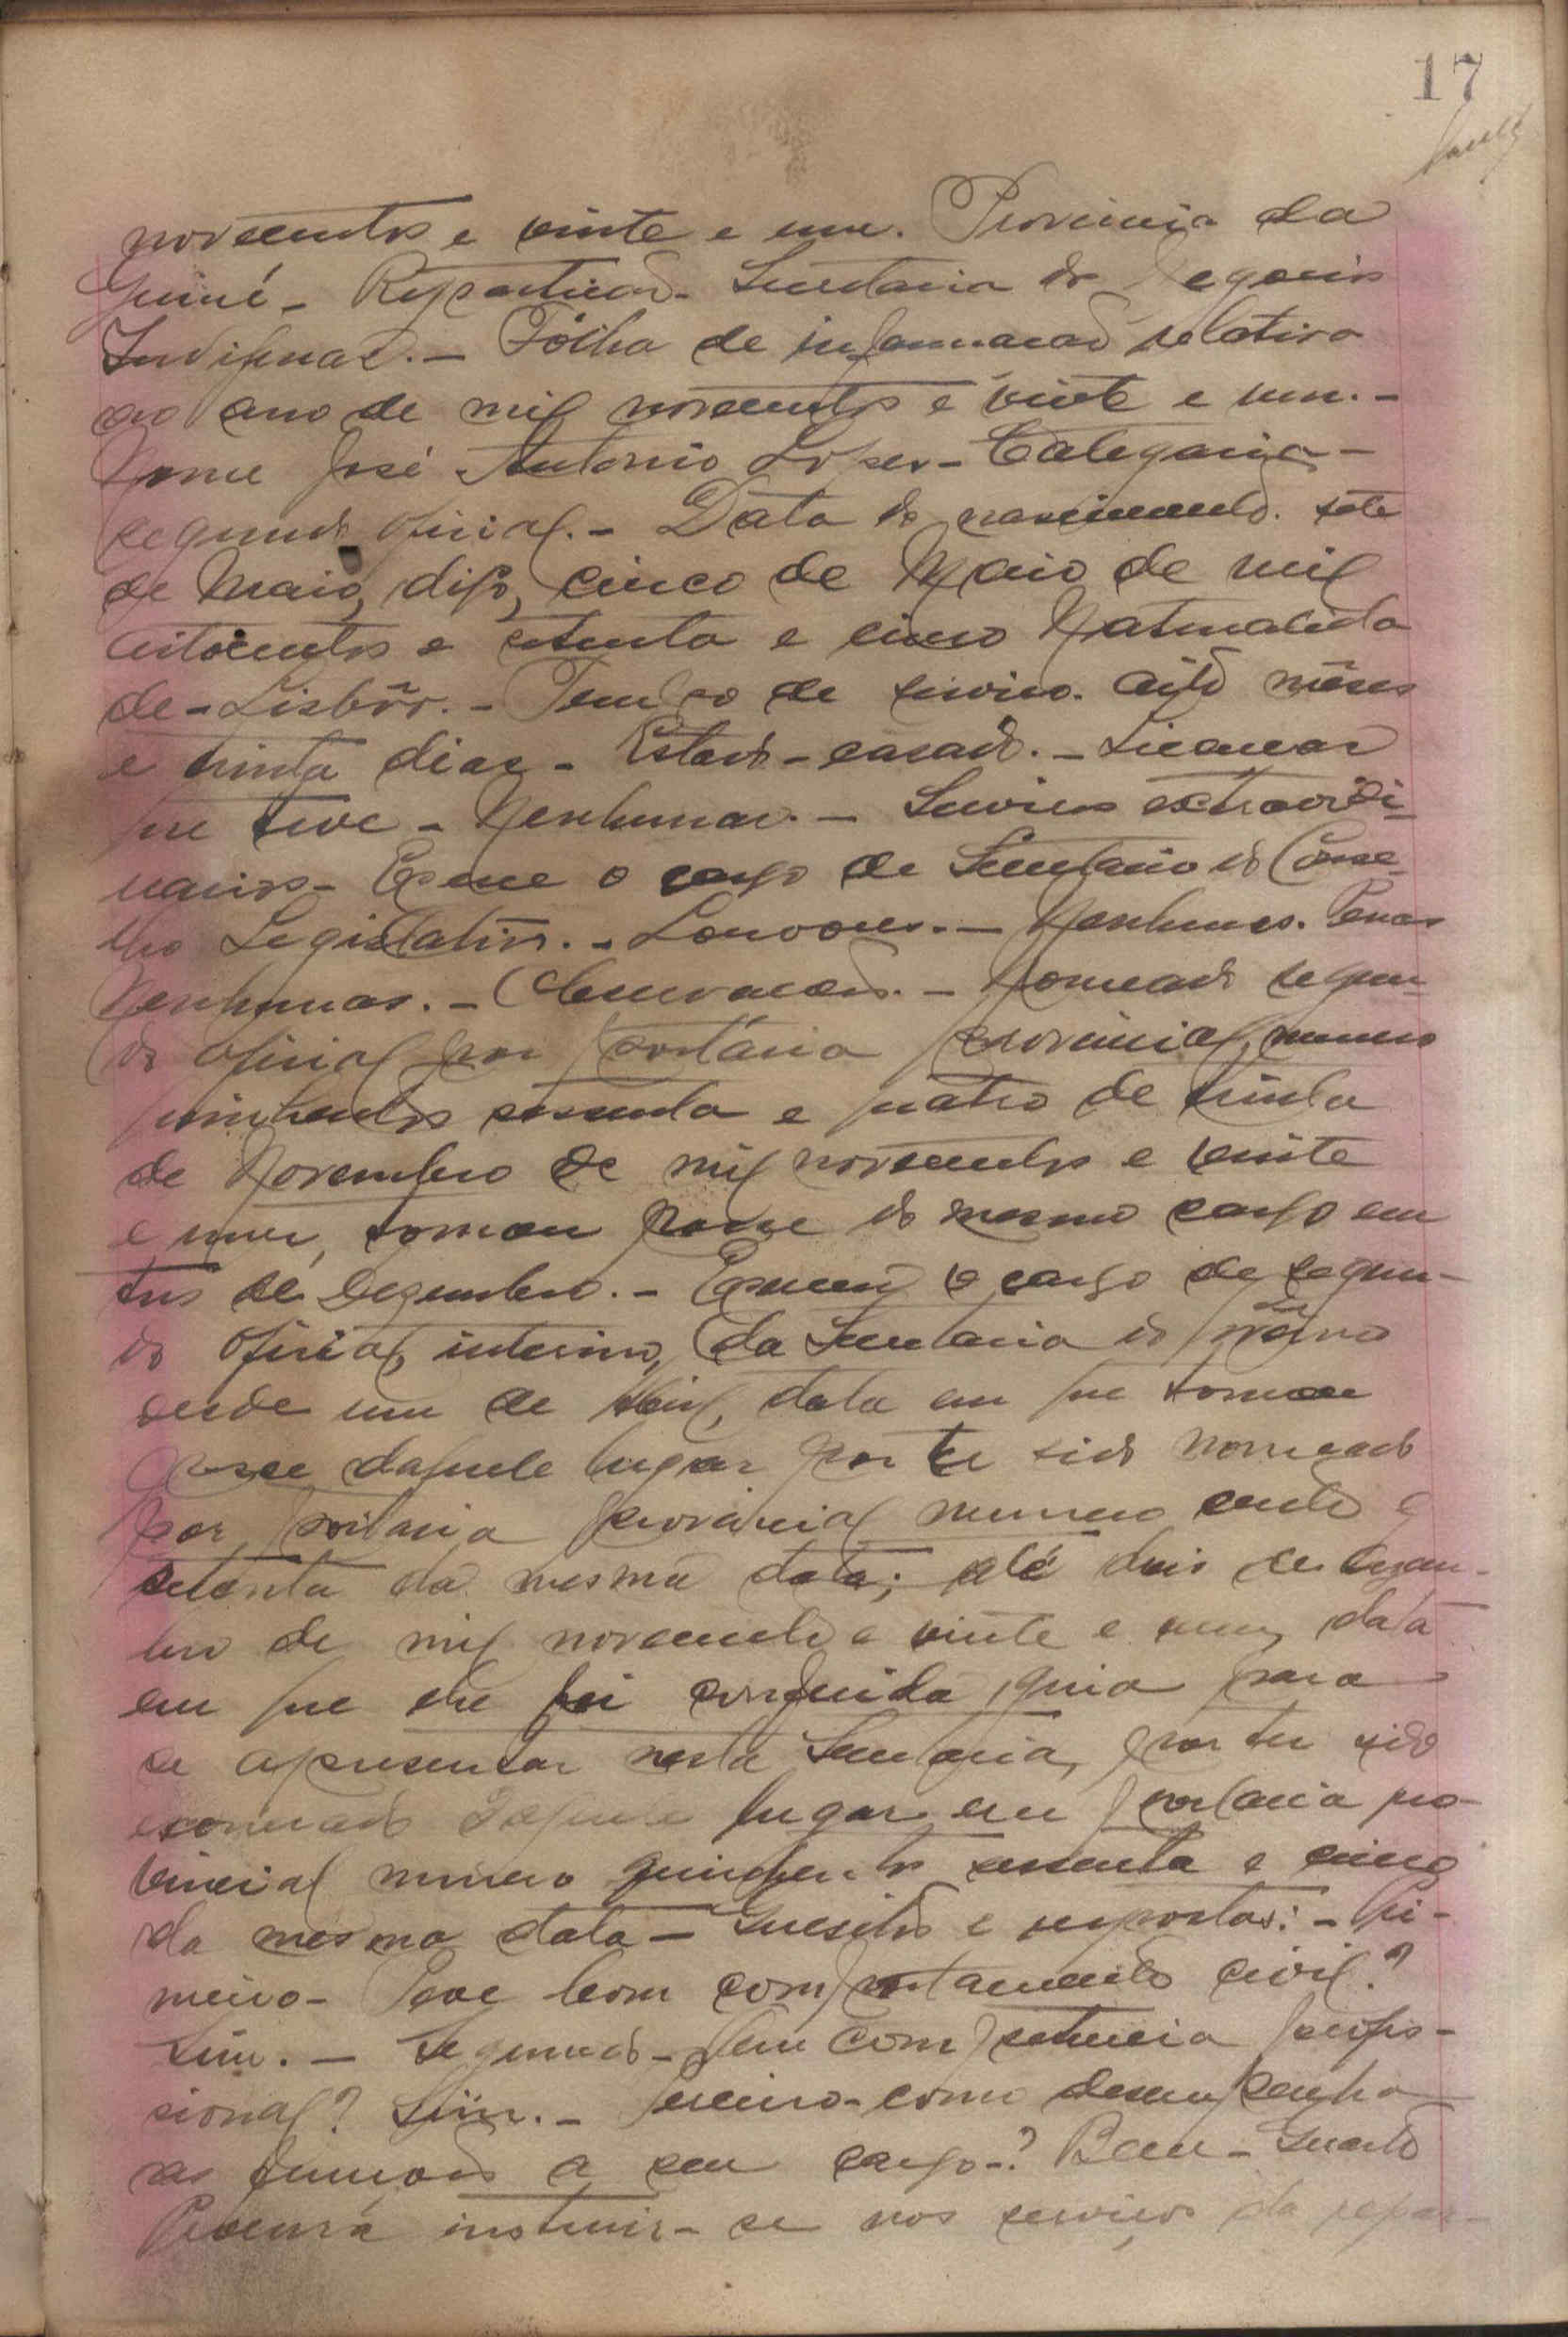 17
novecentos e vinte e um. Provincia da
Guiné - Repartição - Secretaria dos Negocios
Indigenas. - Fôlha de informação relativa
ao ano de mil novecentos e vinte e um. -
Nome José Antonio Lopes - Categoria -
segundo oficial. - Data do nascimento. sete
de Maio, digo, cinco de Maio de mil
oitocentos e setenta e cinco Naturalida
de - Lisbôa. - Tempo de serviço. oito mêses
e trinta dias - Estado - casado. - Licenças
que teve - Nenhumas. - Serviços extraordi-
narios - Exerce o cargo de Secretario do Conse-
lho Legislativo. - Louvores. - Nenhuns. Penas
Nenhumas. - Observações. - Nomeado segun-
do oficial por portária provincial numero
quinhentos sessenta e quatro de trinta
de Novembro de mil novecentos e vinte
e um, tomou posse do mesmo cargo em
tres de Dezembro. - Exerceu o cargo de segun-
do oficial, interino, da Secretaria do
desde um de Abril, data em que tomou
posse daquele lugar por ter sido nomeado
por portaria provincial numero cento e
setenta da mesma data; até dois de Dezem-
bro de mil novecentos e vinte e um, data
em que lhe foi conferida guia para
se apresentar nesta Secretaria, por ter sido
exonerado daquele lugar em portaria pro-
vincial numero quinhentos sessenta e cinco
da mesma data - Quesitos e respostas: - Pri-
meiro - Teve bom comportamento civil?
Sim. - Segundo - Tem competencia profis-
sional? Sim. - Terceiro - como desempenha
as funções a seu cargo -? Bem - Quarto
Procura instruir-se nos serviços da repar-